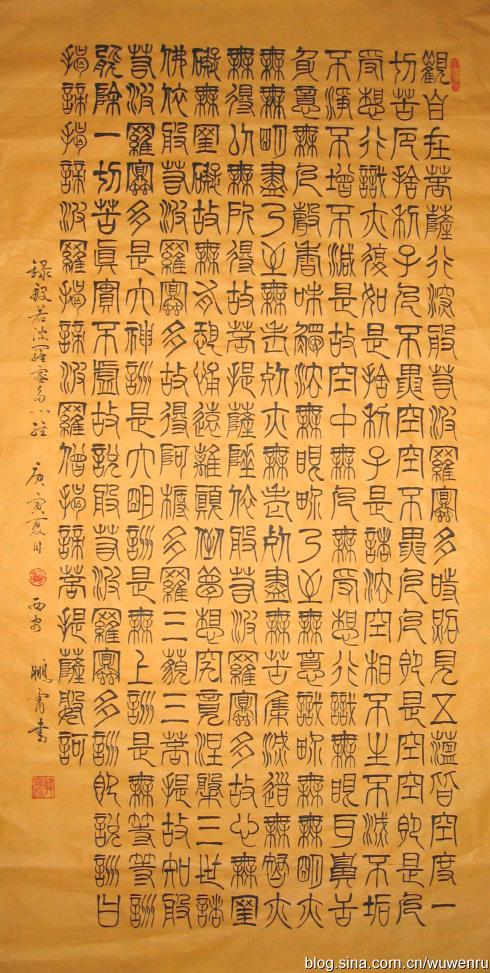 觀自在菩薩行深般若波羅蜜多時照見五蘊皆空度一
切苦厄捨利子色不異空空不異色色即是空空即是色
受想行識亦復如是捨利子是諸法空相不生不滅不垢
不淨不增不減是故空中無色無受想行識無眼耳鼻舌
身意無色聲香味觸法無眼界乃至無意識界無無明亦
無無明盡乃至無老死亦無老死盡無苦集滅道無智亦
無得以無所得故菩提薩埵依般若波羅蜜多故心無罣
礙無罣礙故無有恐怖遠離顛倒夢想究竟涅槃三世諸
佛依般若波羅蜜多故得阿耨多羅三藐三菩提故知般
若波羅蜜多是大神詶是大明詶是無上詶是無等等詶
能除一切苦真實不虛故說般若波羅蜜多詶即說詶曰
揭諦揭諦波羅揭諦波羅僧揭諦菩提薩婆訶
錄般若波羅蜜多心經 庚寅夏日 西安 鵬霄書
blog.sina.com.cn/wuwenru